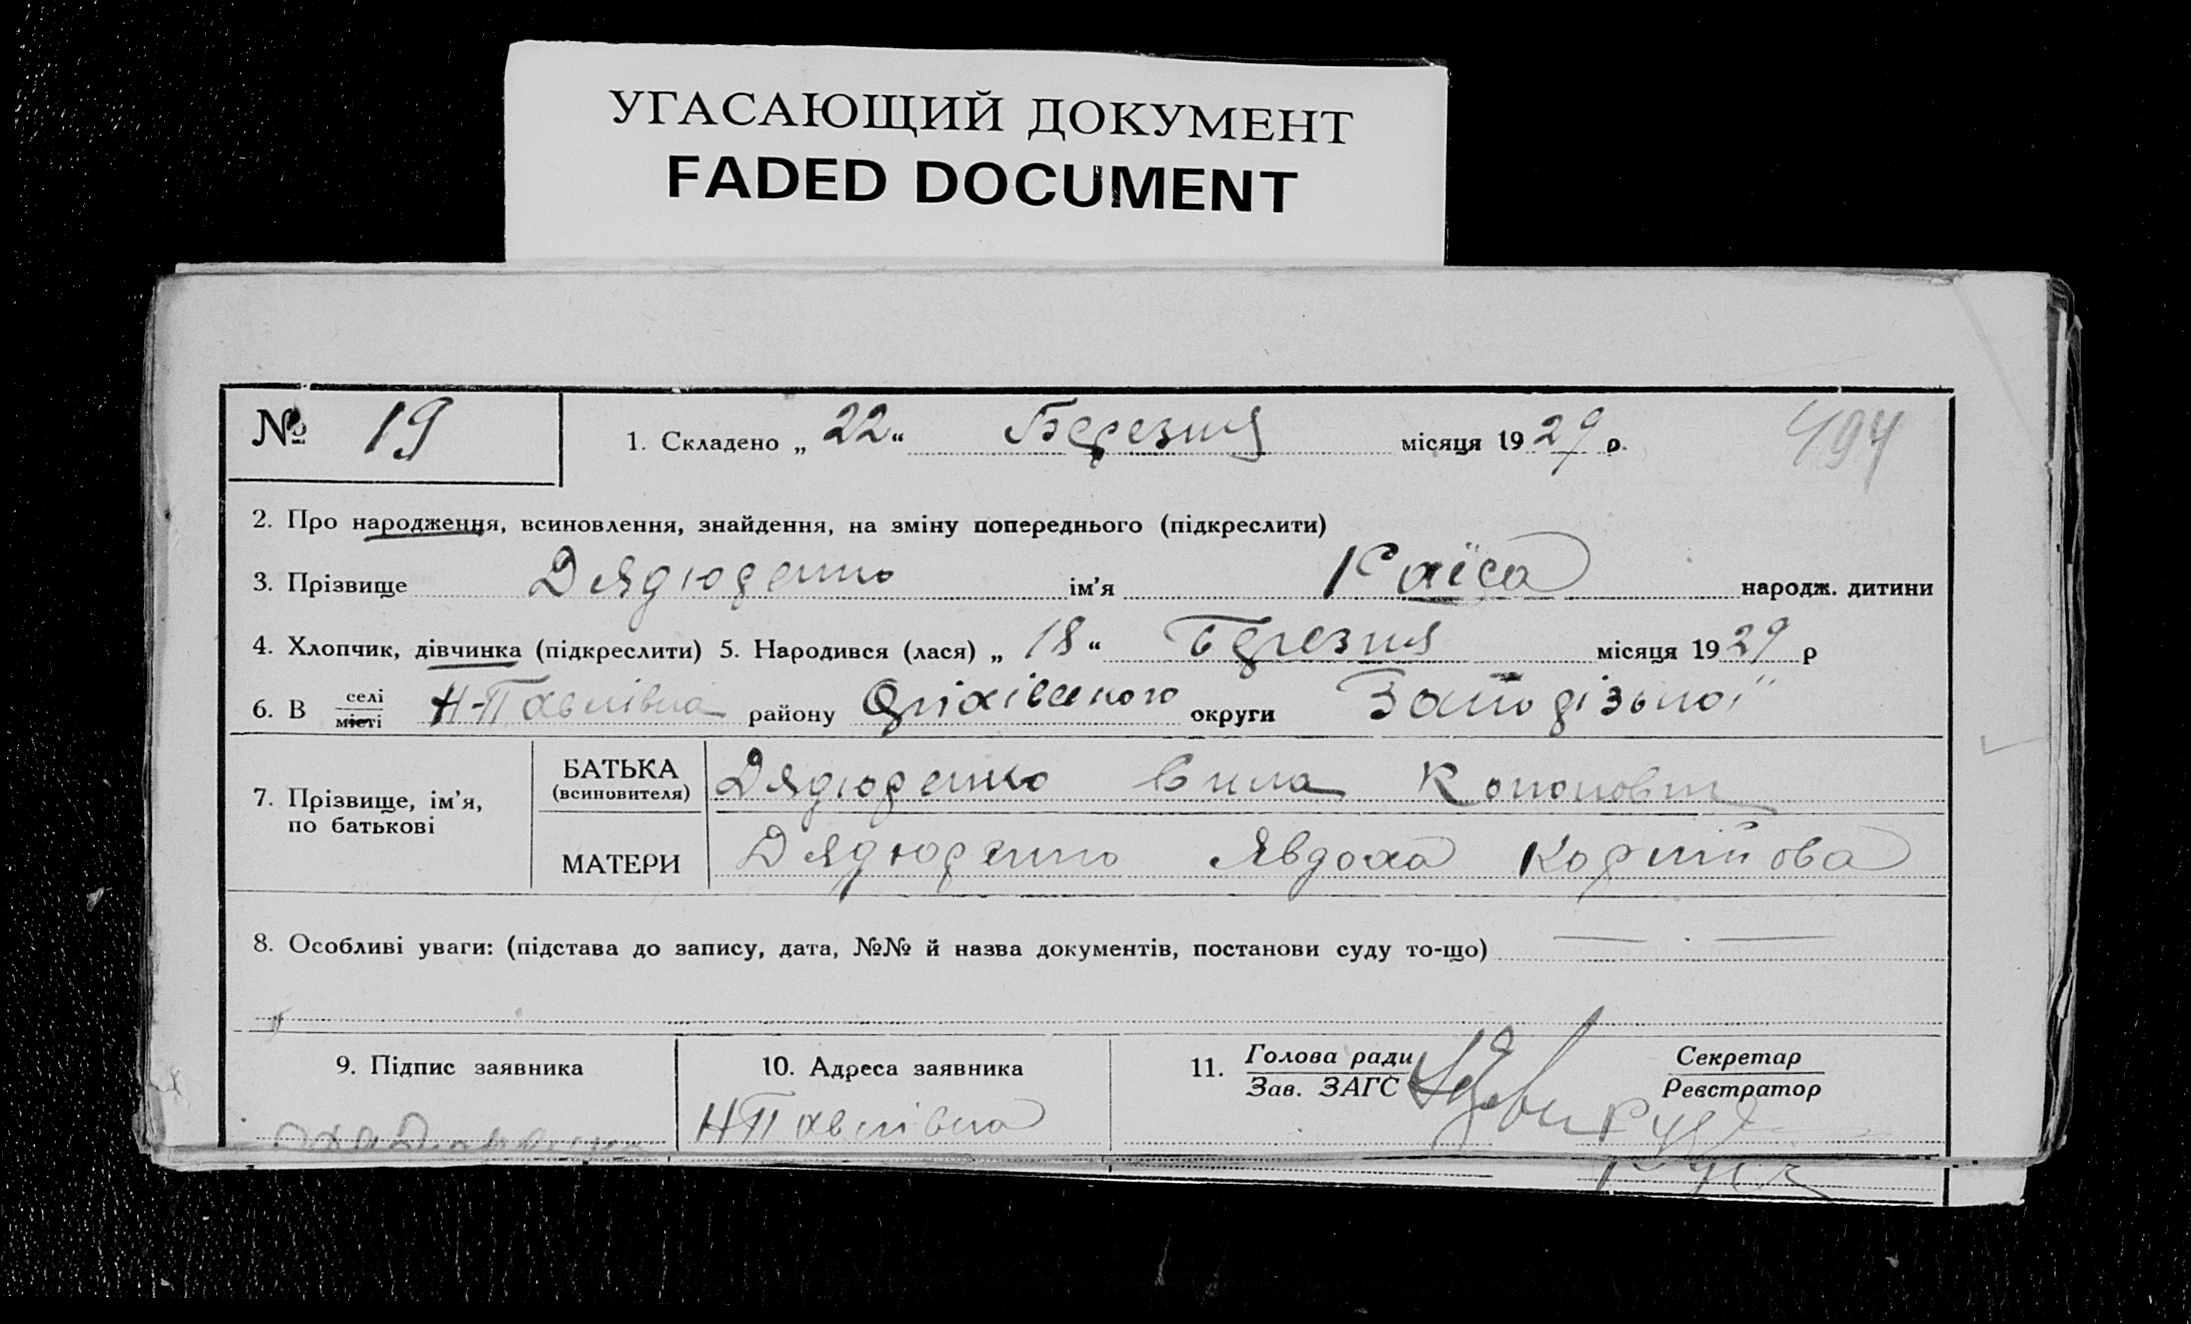 УГАСАЮЩИЙ ДОКУМЕНТ
FADED DOCUMENT
№ 19
1. Складено „ 22 “ Березня місяця 1929 р. 494
2. Про народження, всиновлення, знайдення, на зміну попереднього (підкреслити)
3. Прізвище Дядюренко ім’я Раїса народж. дитини
4. Хлопчик, дівчинка (підкреслити) 5. Народився (лася) „ 18 “ Березня місяця 1929 р
6. В селі місті Н-Павлівка району Оріхівського округи Запорізької
7. Прізвище, ім’я, по батькові
БАТЬКА (всиновителя) Дядюренко Кононович
МАТЕРИ Дядюренко Явдоха Корніїова
8. Особливі уваги: (підстава до запису, дата, №№ й назва документів, постанови суду то-що) — . —
9. Підпис заявника
10. Адреса заявника
Н Павлівка
11. Голова ради
Зав. ЗАГС
Секретар
Реєстратор